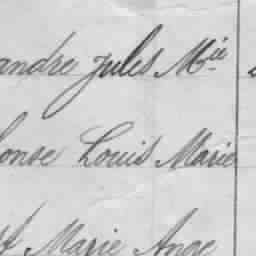 andre Jules Mie
onse Louis Marie
st Marie Ange